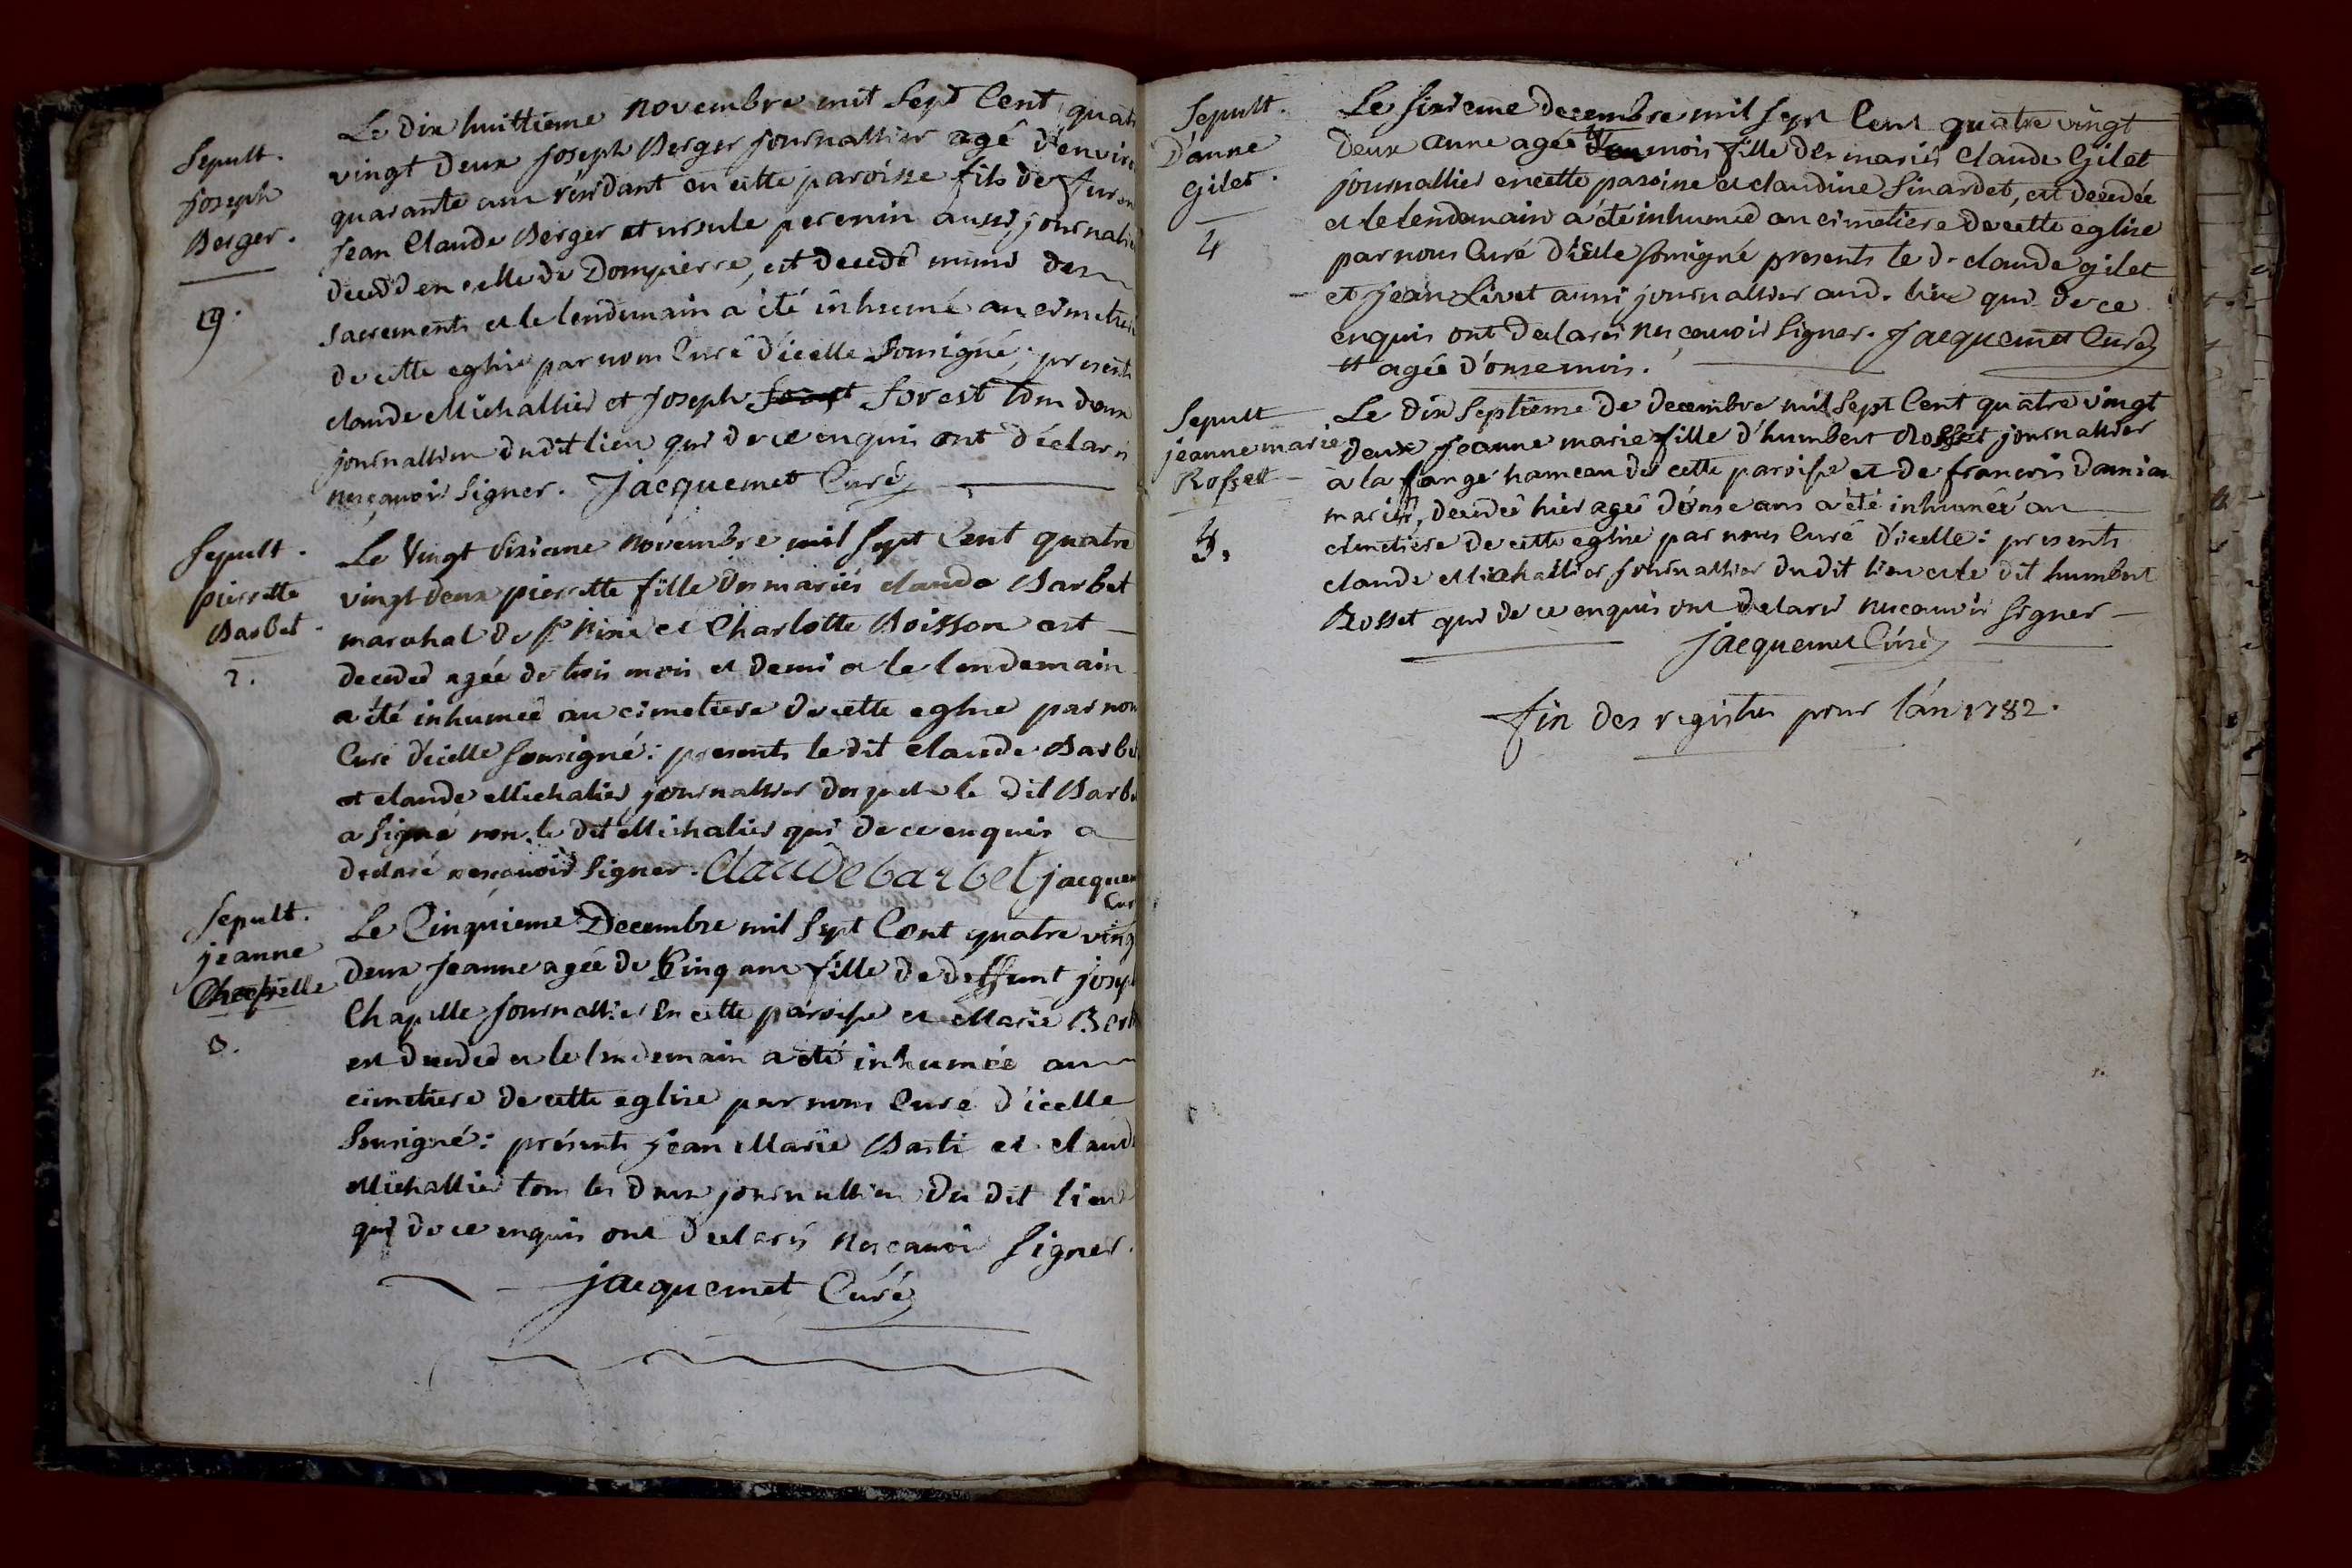 Sepult.
Joseph
Berger.
19.
Le Dix huittieme novembre mil Sept Cent quatr
vingt Deux Joseph Berger Journallier agé d'enviro
quarante ans résidant en cette paroisse fils de furent
Jean Claude Berger et ursule perenin aussi journalie
deced en celle de Dompierre, est decedé muni des
sacrements et le lendemain a été inhumé au cimetiere
de cette eglise par nous Curé d'icelle Sousigné; presents
claude Michallier et Joseph forest tous deux
journalliers dudit lieu qui de ce enquis ont déclaré
nesçavoir signer. Jacquemet Curé
Sepult.
pierrette
Barbet.
2.
Le Vingt Sixieme Novembre mil Sept Cent quatre
vingt deux pierrette fille des mariés claude Barbet
marechal de St Nisié et Charlotte Boisson est
decedeé agée de trois mois et demi et le lendemain
a été inhumeé au cimetiere de cette eglise par nous
Curé d'icelle Sousigné: presents le dit claude Barbe
et claude Michalier journallier desquels le dit Barbe
a signé non le dit Michalier qui de ce enquis a
declaré nesçavoir signer. Claude barbet jacquem
Cur
Sepult.
jeanne
Chapelle
3.
Le Cinquieme Decembre mil Sept Cent quatre ving
deux Jeanne agée de Cinq ans fille de deffunt josep
Chapelle Journallier En cette paroisse et Marie Bert
est decedeé et le lendemain a été inhumée au
cimetiere de cette eglise par nous Curé d'icelle
Sousigné: présents jean Marie Basti et claude
Michallier tous les deux journalliers Du dit lieu
qui de ce enquis ont declarés nesçavoir signer.
jacquemet Curé
Sepult.
D'anne
Gilet.
4
Le Sixieme decembre mil Sept Cent quatre vingt
Deux anne agée # mois fille des mariés Claude Gilet
journallier en cette paroisse et claudine Sinardet, est decedée
et le lendemain a été inhumeé au cimetiere de cette eglise
par nous Curé d'icelle sousigné presents le d. claude gilet
et jean Livet aussi journallier aud. lieu qui de ce
enquis ont declarés nesçavoir signer. Jacquemet Curé
# agée d'onse mois.
Sepult
jeanne marie
Rosset
5.
Le dix Septieme de decembre mil Sept Cent quatre vingt
deux Jeanne marie fille d'humbert Rosset journallier
à la fange hameau de cette paroisse et de francois Damian
mariés, decedeé hier agée d'onse ans a été inhumeé au
cimetiere de cette eglise par nous Curé d'icelle: presents
claude Michallier journallier du dit lieu et le dit humbert
Rosset qui de ce enquis ont declaré nesçavoir signer
jacquemet Curé
fin des registres pour l'an 1782.